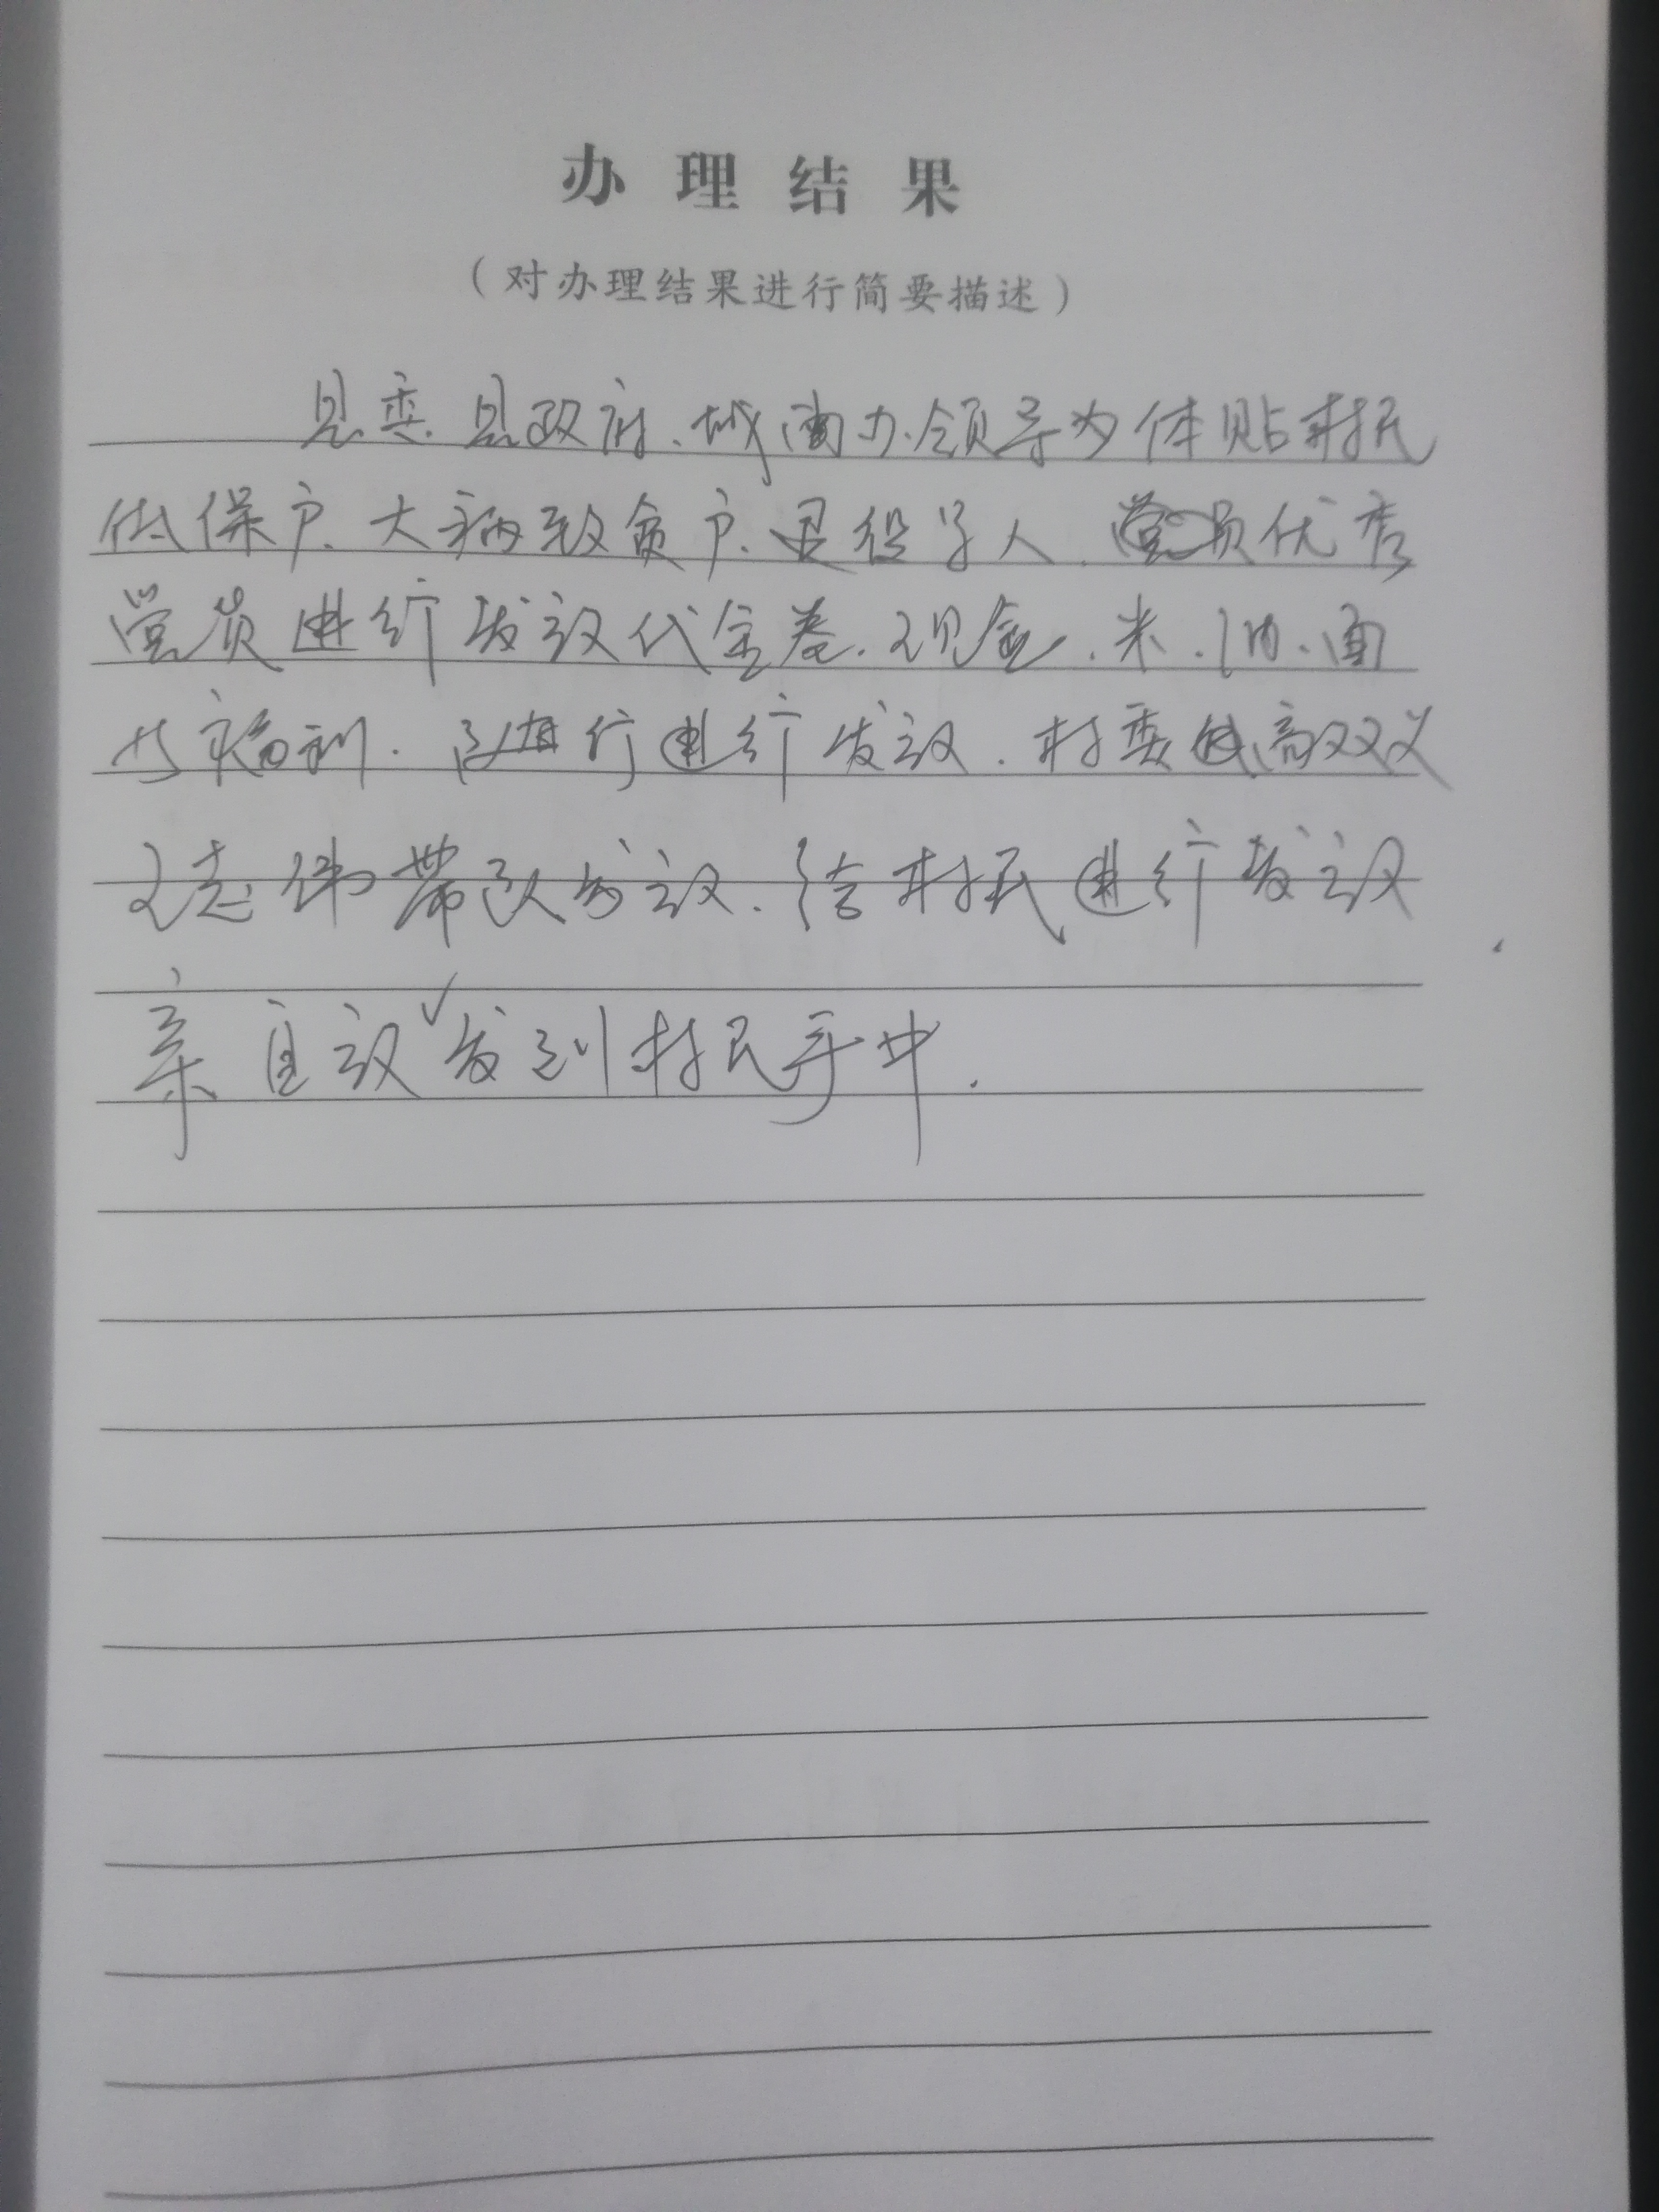 办理结果
（对办理结果进行简要描述）
县委.县政府.城南办.领导为体贴村民
低保户.大病致贫户.退役军人.党员优秀
党员进行发放代金卷.现金.米.油.面
福利.进行发放.村委高双义
带队发放.给村民进行发放
亲自放发到村民手中.